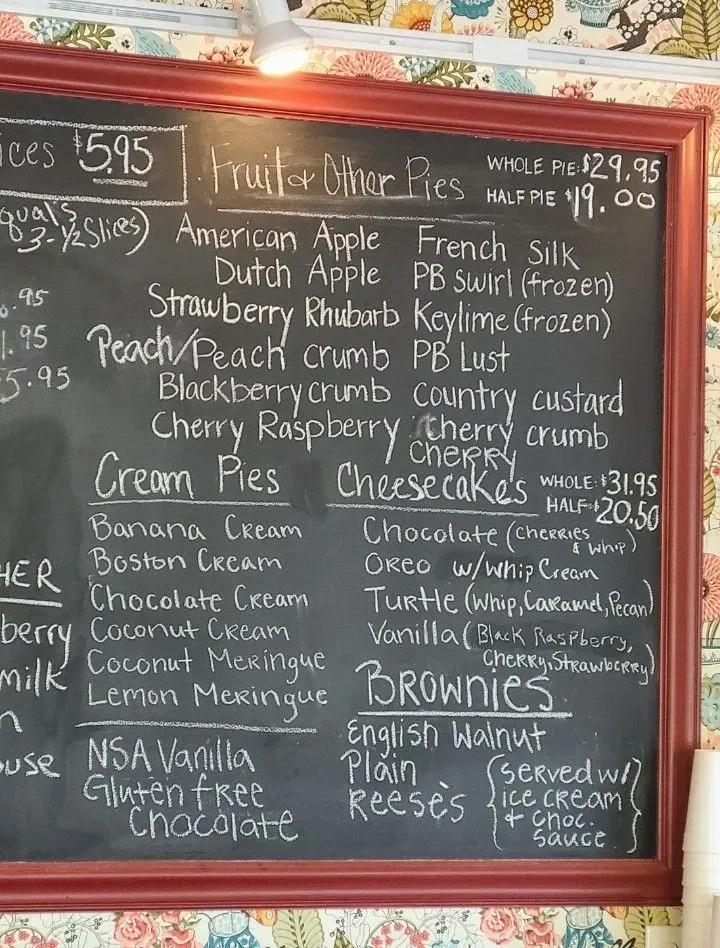 ices $5.95
Fruit & Other Pies
WHOLE PIE: $29.95
HALF PIE $19.00
3-1/2 Slices)
American Apple French Silk
Dutch Apple PB Swirl (frozen)
Strawberry Rhubarb Keylime (frozen)
Peach/Peach crumb PB Lust
Blackberry crumb country custard
Cherry Raspberry cherry crumb
CHERRY
.95
.95
5.95
Cream Pies
Banana Cream
Boston Cream
Chocolate Cream
Coconut Cream
Coconut Meringue
Lemon Meringue
NSA Vanilla
Gluten free
Chocolate
Cheesecakes
WHOLE: $31.95
HALF: $20.50
Chocolate (CHERRIES
& WHIP)
OREO w/whip Cream
Turtle (Whip, Caramel, Pecan)
Vanilla (Black Raspberry,
Cherry, Strawberry)
BROWNiES
English Walnut
Plain
REESE'S
{served w/
ice cream
& choc.
sauce}
HER
berry
milk
n
ouse